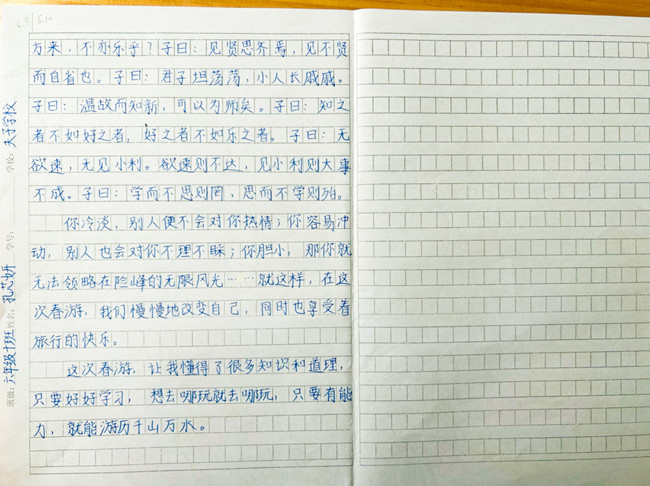 6.9/6.10
方来，不亦乐乎？子曰：见贤思齐焉，见不贤
而自省也。子曰：君子坦荡荡，小人长戚戚。
子曰：温故而知新，可以为师矣。子曰：知之
者不如好之者，好之者不如乐之者。子曰：无
欲速，无见小利。欲速则不达，见小利则大事
不成。子曰：学而不思则罔，思而不学则殆。
你冷淡，别人便不会对你热情；你容易冲
动，别人也会对你不理不睬；你胆小，那你就
无法领略在险峰的无限风光……就这样，在这
次春游，我们慢慢地改变自己，同时也享受着
旅行的快乐。
这次春游，让我懂得了很多知识和道理，
只要好好学习，想去哪玩就去哪玩，只要有能
力，就能游历千山万水。
班级：六年级十班 姓名：孔芯妍 学号： 学校：夫子学校